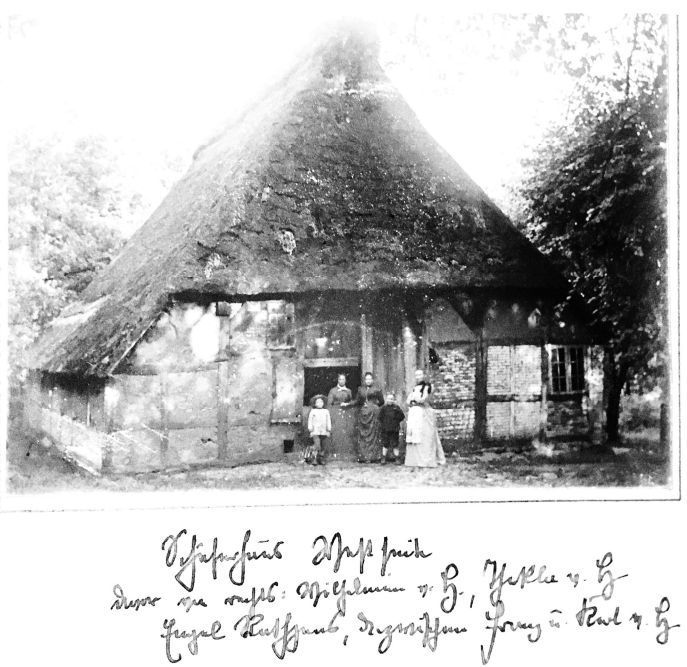 Schäferhaus Westseite
davor von rechts: Wilhelmine v. H, Thekla v. H
Engel Rathjens, dazwischen Franz u. Karl v. H